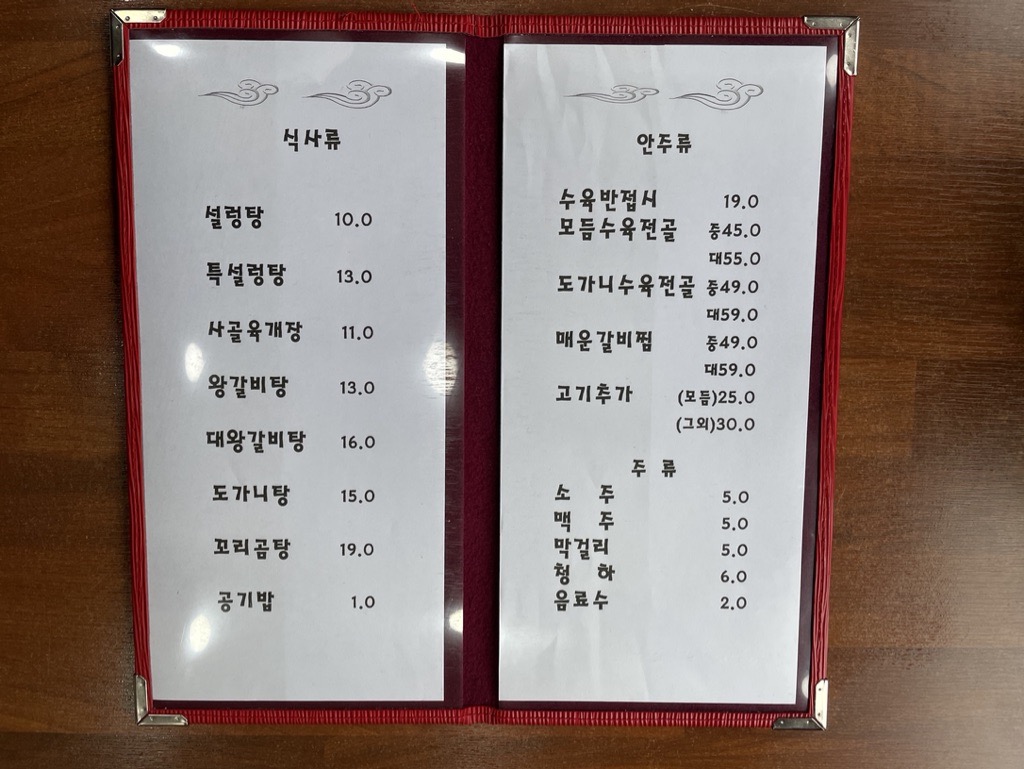 식사류
설렁탕 10.0
특설렁탕 13.0
사골육개장 11.0
왕갈비탕 13.0
대왕갈비탕 16.0
도가니탕 15.0
꼬리곰탕 19.0
공기밥 1.0
안주류
수육반접시 19.0
모듬수육전골 중45.0
대55.0
도가니수육전골 중49.0
대59.0
매운갈비찜 중49.0
대59.0
고기추가 (모듬)25.0
(그외)30.0
주 류
소 주 5.0
맥 주 5.0
막걸리 5.0
청 하 6.0
음료수 2.0